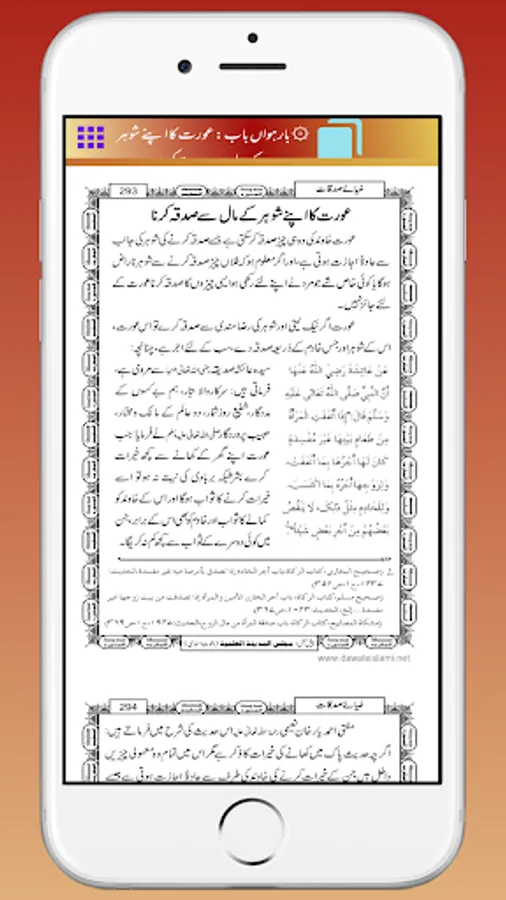 بارہواں باب : عورت کا اپنے شوہر
293
ضیائے صدقات
عورت کا اپنے شوہر کے مال سے صدقہ کرنا
عورت خاوند کی وہ ہی چیز صدقہ کرسکتی ہے جسے صدقہ کرنے کی شوہر کی جانب
سے عادۃً اجازت ہوتی ہے، اور اگر معلوم ہو کہ فلاں چیز صدقہ کرنے سے شوہر ناراض
ہوگا یا کوئی خاص شے جو مرد نے اپنے لئے رکھی ہو ایسی چیزوں کا صدقہ کرنا عورت کے
لئے جائز نہیں۔
عورت اگر نیک نیتی اور شوہر کی رضا مندی سے صدقہ کرے تو اس عورت،
اس کے شوہر اور جس خادم کے ذریعہ صدقہ دے، سب کے لئے اجر ہے، چنانچہ:
عَنْ عَائِشَةَ رَضِيَ اللّٰهُ عَنْهَا
أَنَّ النَّبِيَّ صَلَّى اللّٰهُ تَعَالٰى عَلَيْهِ
وَسَلَّمَ قَالَ: إِذَا أَنْفَقَتِ الْمَرْأَةُ
مِنْ طَعَامِ بَيْتِهَا غَيْرَ مُفْسِدَةٍ
كَانَ لَهَا أَجْرُهَا بِمَا أَنْفَقَتْ،
وَلِزَوْجِهَا أَجْرُهُ بِمَا اكْتَسَبَ،
وَلِلْخَادِمِ مِثْلُ ذٰلِكَ، لَا يَنْقُصُ
بَعْضُهُمْ مِنْ أَجْرِ بَعْضٍ شَيْئًا
سیدہ عائشہ صدیقہ رضی اللہ تعالیٰ عنہا سے مروی ہے،
فرماتی ہیں: سرکارِ والا تبار، ہم بے کسوں کے
مددگار، شفیعِ روزِ شمار، دو عالم کے مالک و مختار،
حبیبِ پروردگار صلی اللہ تعالیٰ علیہ وسلم نے فرمایا: جب
عورت اپنے گھر کے کھانے سے کچھ خیرات
کرے بشرطیکہ بربادی کی نیت نہ ہو تو اسے
خیرات کرنے کا ثواب ہوگا اور اس کے خاوند کو
کمانے کا ثواب اور خادم کو بھی اس کے برابر، جن
میں کوئی دوسرے کے ثواب سے کچھ کم نہ کریگا۔
مجلس المدينة العلمية
www.dawateislami.net
294
ضیائے صدقات
مفتی احمد یار خان نعیمی رحمۃ اللہ تعالیٰ علیہ اس حدیث کی شرح میں فرماتے ہیں:
اگرچہ حدیثِ پاک میں کھانے کی خیرات کا ذکر ہے مگر اس میں تمام وہ معمولی چیزیں
داخل ہیں جن کے خیرات کرنے کی خاوند کی طرف سے عادۃً اجازت ہوتی ہے جیسے